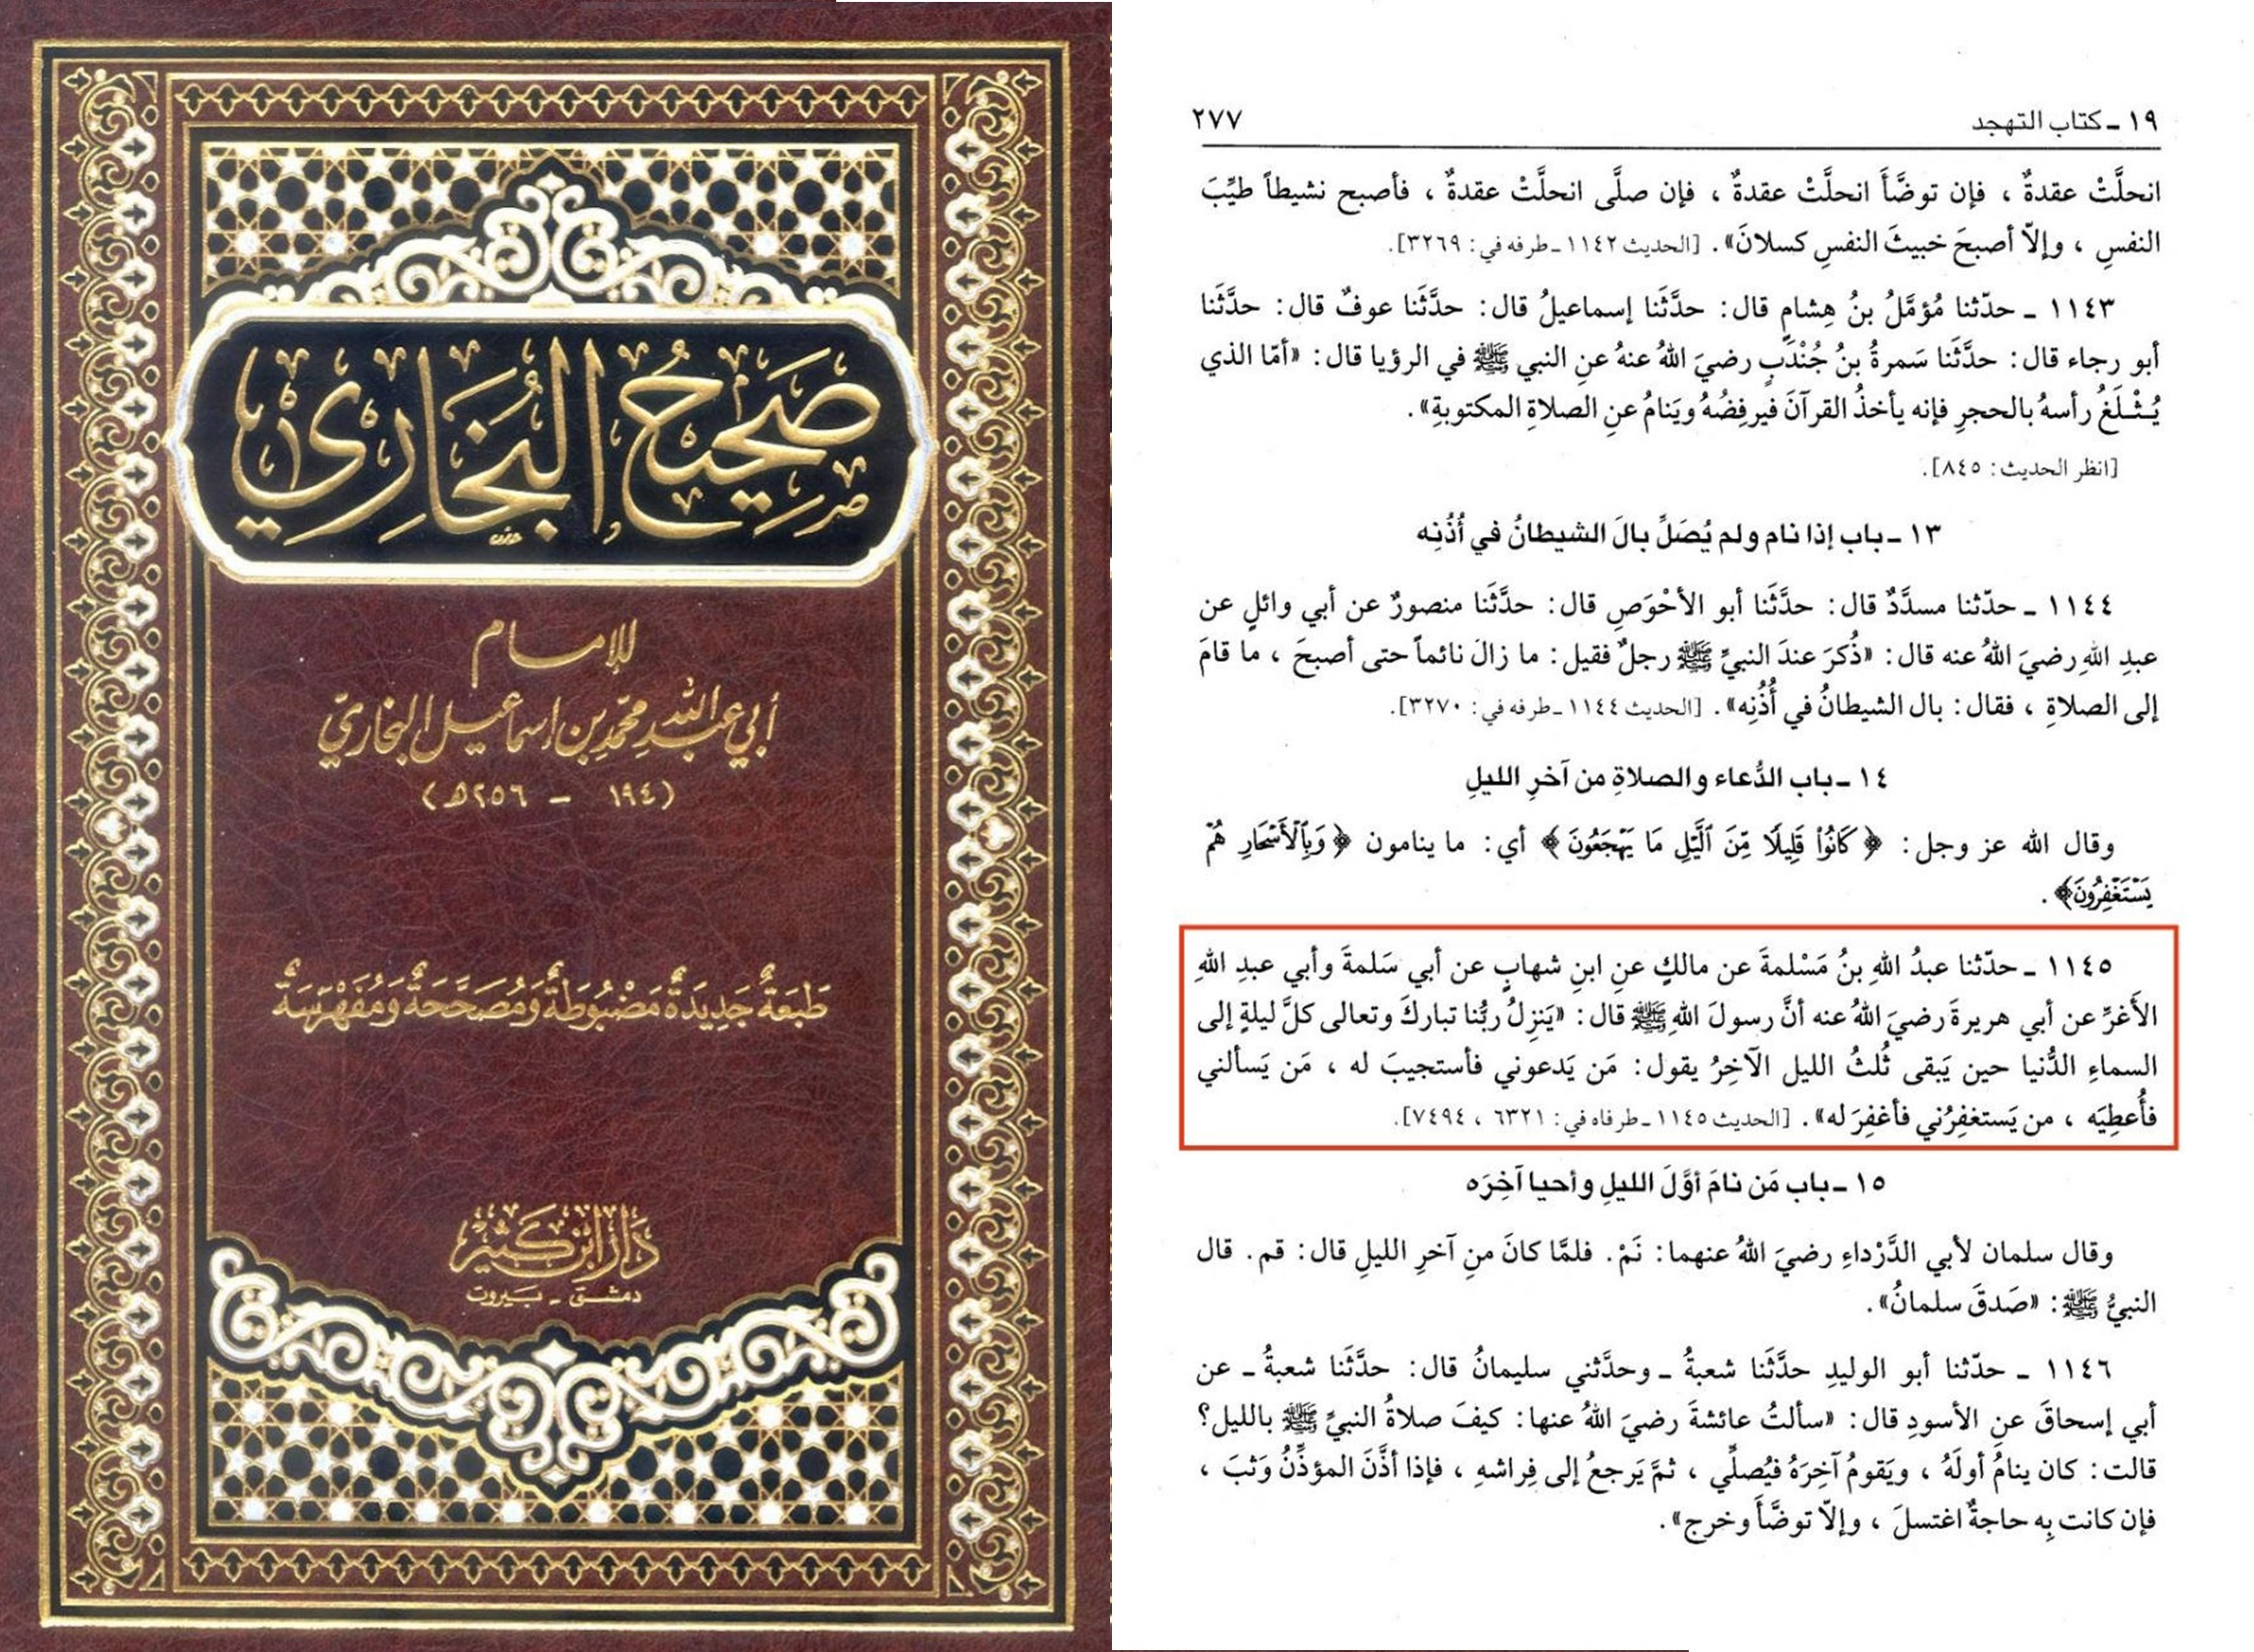 صَحِيحُ البُخَارِيِّ
للإمام
أبي عبد الله محمّد بن إسماعيل البخاريّ
(١٩٤ - ٢٥٦هـ)
طَبعَةٌ جَدِيدَةٌ مَضْبُوطَةٌ وَمُصَحَّحَةٌ وَمُفَهْرَسَةٌ
دَارُ ابْن كَثِير
دمشق - بيروت
١٩ - كتاب التهجد
٢٧٧
انحلَّتْ عقدةٌ ، فإن توضَّأَ انحلَّتْ عقدةٌ ، فإن صلَّى انحلَّتْ عقدةٌ ، فأصبح نشيطاً طيِّبَ
النفسِ ، وإلاّ أصبحَ خبيثَ النفسِ كسلانَ». [الحديث ١١٤٢ - طرفه في: ٣٢٦٩].
١١٤٣ - حدّثنا مُؤمَّلُ بنُ هِشامٍ قال: حدَّثَنا إسماعيلُ قال: حدَّثَنا عوفٌ قال: حدَّثَنا
أبو رجاء قال: حدَّثَنا سَمرةُ بنُ جُنْدَبٍ رضيَ اللهُ عنهُ عنِ النبي ﷺ في الرؤيا قال: «أمّا الذي
يُثْلَغُ رأسهُ بالحجرِ فإنه يأخذُ القرآنَ فيرفِضُهُ ويَنامُ عنِ الصلاةِ المكتوبةِ».
[انظر الحديث: ٨٤٥].
١٣ - باب إذا نام ولم يُصَلِّ بالَ الشيطانُ في أُذُنِه
١١٤٤ - حدّثنا مسدَّدٌ قال: حدَّثَنا أبو الأحْوَصِ قال: حدَّثَنا منصورٌ عن أبي وائلٍ عن
عبدِ اللهِ رضيَ اللهُ عنه قال: «ذُكرَ عندَ النبيِّ ﷺ رجلٌ فقيل: ما زالَ نائماً حتى أصبحَ ، ما قامَ
إلى الصلاةِ ، فقال: بال الشيطانُ في أُذُنِه». [الحديث ١١٤٤ - طرفه في: ٣٢٧٠].
١٤ - باب الدُّعاء والصلاةِ من آخرِ الليلِ
وقال الله عز وجل: ﴿كَانُوا۟ قَلِيلًا مِّنَ ٱلَّيْلِ مَا يَهْجَعُونَ﴾ أي: ما ينامون ﴿وَبِٱلْأَسْحَارِ هُمْ
يَسْتَغْفِرُونَ﴾.
١١٤٥ - حدّثنا عبدُ اللهِ بنُ مَسْلمةَ عن مالكٍ عنِ ابنِ شهابٍ عن أبي سَلمةَ وأبي عبدِ اللهِ
الأَغرِّ عن أبي هريرةَ رضيَ اللهُ عنه أنَّ رسولَ اللهِ ﷺ قال: «يَنزِلُ ربُّنا تباركَ وتعالى كلَّ ليلةٍ إلى
السماءِ الدُّنيا حين يَبقى ثُلثُ الليل الآخِرُ يقول: مَن يَدعوني فأستجيبَ له ، مَن يَسألني
فأُعطِيَه ، من يَستغفِرُني فأغفِرَ له». [الحديث ١١٤٥ - طرفاه في: ٦٣٢١ ، ٧٤٩٤].
١٥ - باب مَن نامَ أوَّلَ الليلِ وأحيا آخِرَه
وقال سلمان لأبي الدَّرْداءِ رضيَ اللهُ عنهما: نَمْ. فلمَّا كانَ منِ آخرِ الليلِ قال: قم. قال
النبيُّ ﷺ: «صَدقَ سلمانُ».
١١٤٦ - حدّثنا أبو الوليدِ حدَّثَنا شعبةُ - وحدَّثني سليمانُ قال: حدَّثَنا شعبةُ - عن
أبي إسحاقَ عنِ الأسودِ قال: «سألتُ عائشةَ رضيَ اللهُ عنها: كيفَ صلاةُ النبيِّ ﷺ بالليل؟
قالت: كان ينامُ أولَهُ ، ويَقومُ آخِرَهُ فيُصلِّي ، ثمَّ يَرجعُ إلى فِراشهِ ، فإذا أذَّنَ المؤذِّنُ وَثبَ ،
فإن كانت بِه حاجةٌ اغتسلَ ، وإلاّ توضَّأَ وخرج».